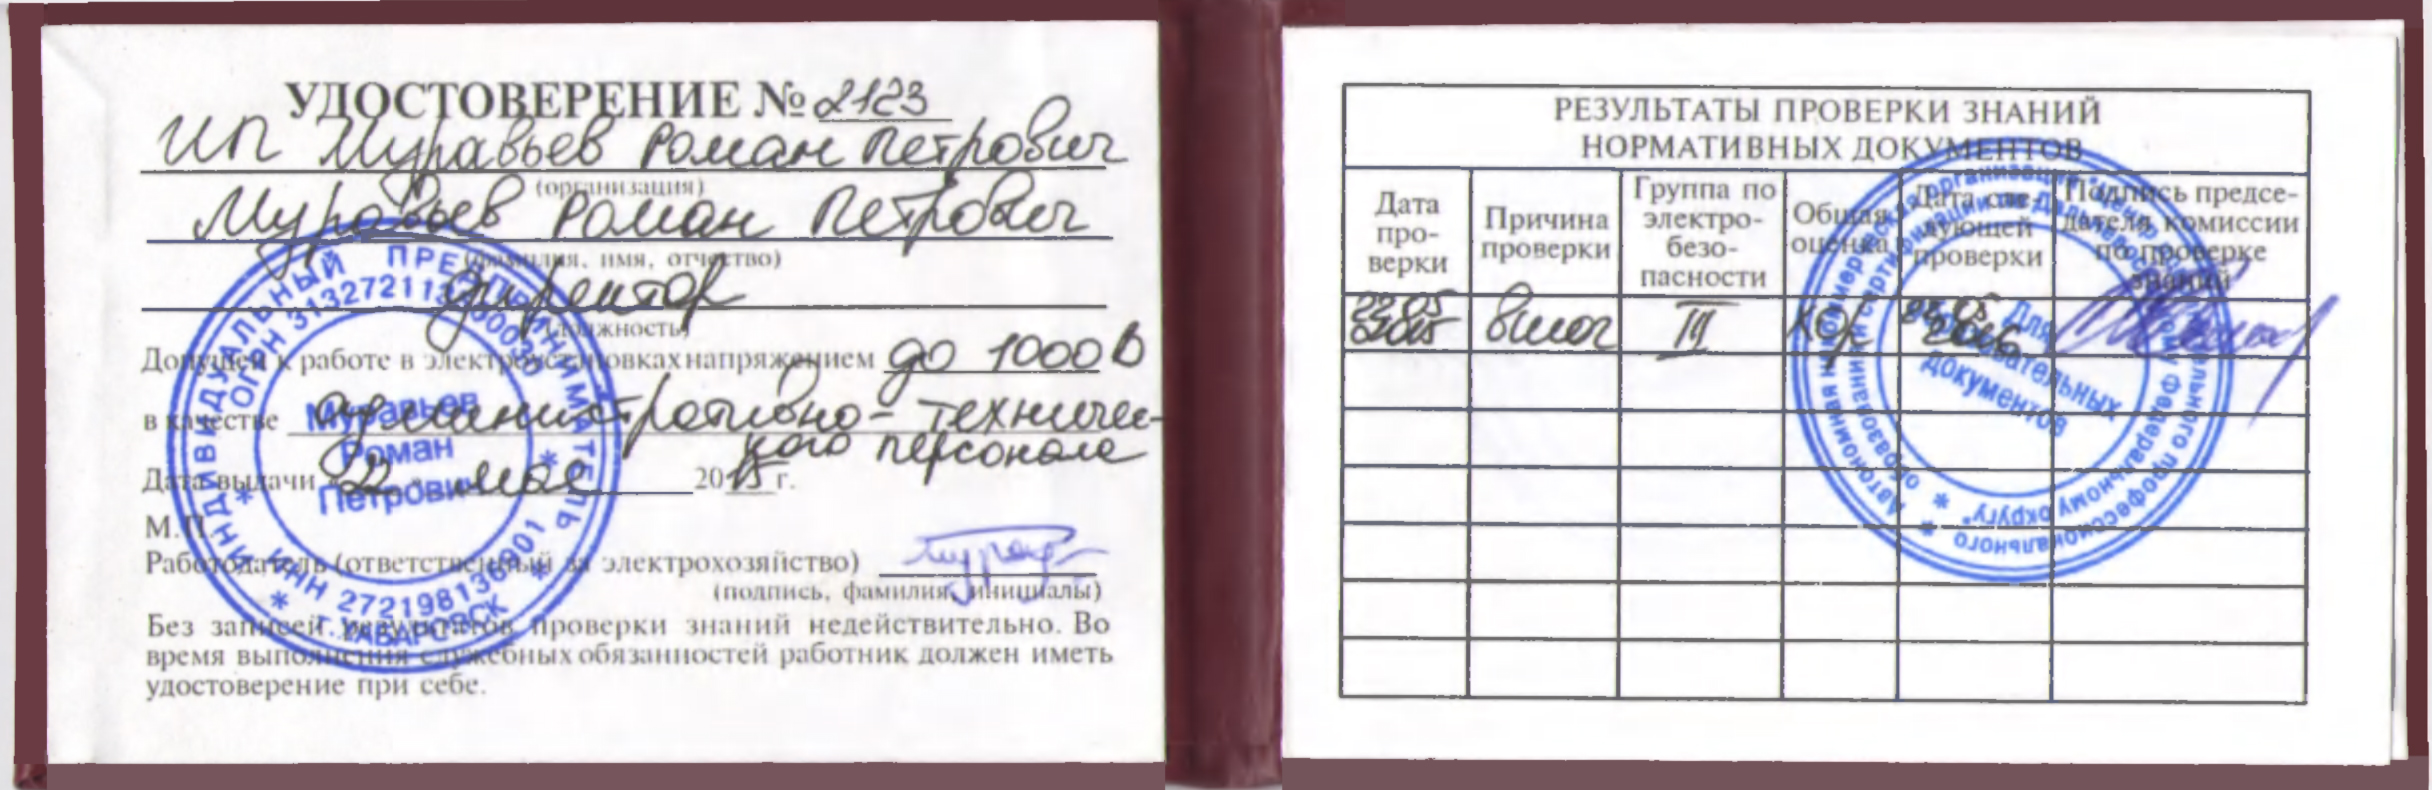 УДОСТОВЕРЕНИЕ № 2123
ИП Муравьев Роман Петрович
(организация)
Муравьев Роман Петрович
(фамилия, имя, отчество)
директор
(должность)
Допущен к работе в электроустановках напряжением до 1000 В
в качестве административно-техничес-
кого персонала
Дата выдачи "22" мая 2015 г.
М.П.
Работодатель (ответственный за электрохозяйство)
(подпись, фамилия, инициалы)
Без записей результатов проверки знаний недействительно. Во
время выполнения служебных обязанностей работник должен иметь
удостоверение при себе.
ИНДИВИДУАЛЬНЫЙ ПРЕДПРИНИМАТЕЛЬ
ОГРН
Муравьев
Роман
Петрович
ИНН 272198136901
Г. ХАБАРОВСК
РЕЗУЛЬТАТЫ ПРОВЕРКИ ЗНАНИЙ
НОРМАТИВНЫХ ДОКУМЕНТОВ
Дата
про-
верки
Причина
проверки
Группа по
электро-
безо-
пасности
Общая
оценка
Дата сле-
дующей
проверки
Подпись предсе-
дателя комиссии
по проверке
знаний
22.05
2015
III
хор
2016
Для
документов